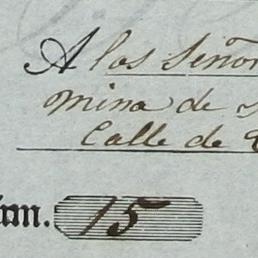 A los Señor
mina de
Calle de
úm. 15